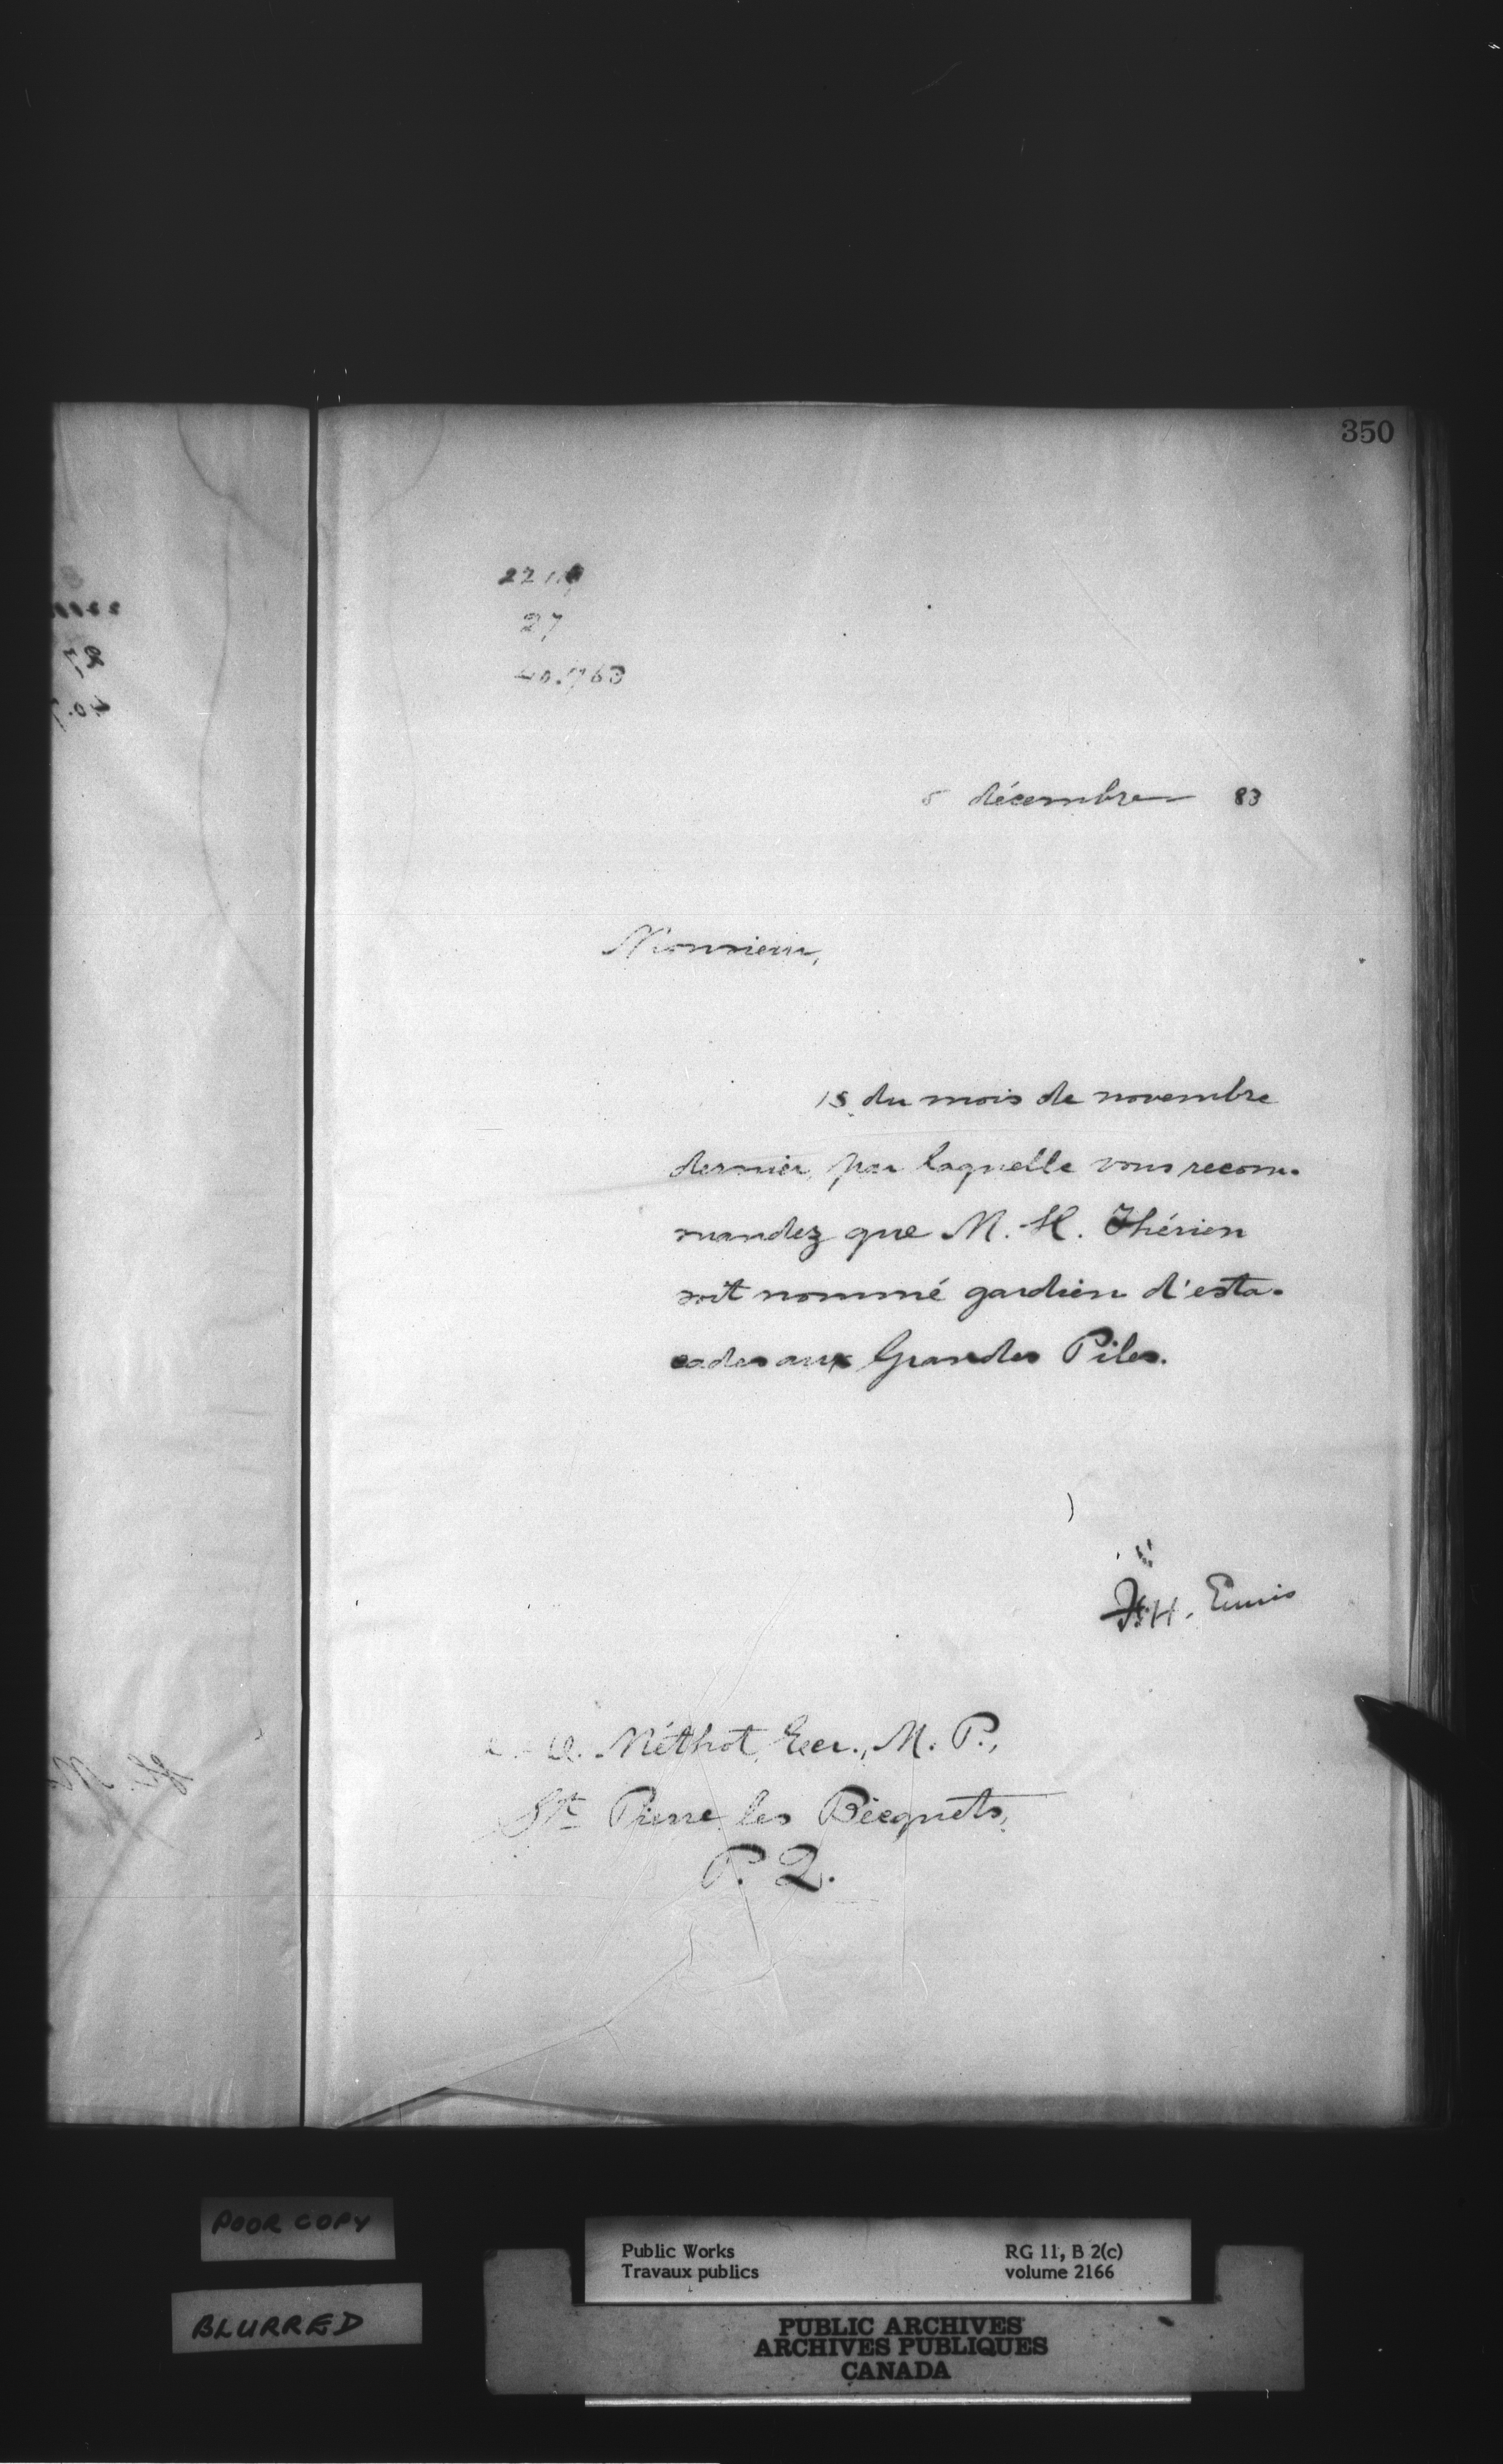 350
27
40.763
5 décembre 83
Monsieur,
15 du mois de novembre
dernier, par laquelle vous recom-
mandez que M. H. Thérien
soit nommé gardien d'esta-
cades aux Grandes Piles.
F.H. Ennis
Méthot, Ecr., M. P.,
St Pierre les Becquets,
P. Q.
POOR COPY
BLURRED
Public Works
Travaux publics
RG 11, B 2(c)
volume 2166
PUBLIC ARCHIVES
ARCHIVES PUBLIQUES
CANADA